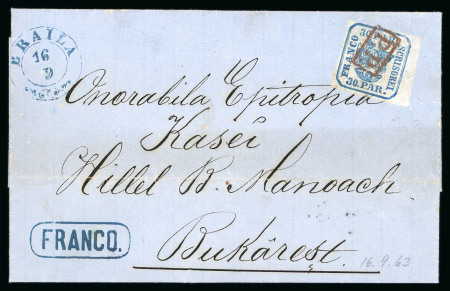 BRAILA
16
9
30
FRANCO
SCRISOREI
30.PAR.
Onorabila Epitropia
Kasei
Hillel B. Manoach
FRANCO.
Bukărest.
16.9.63